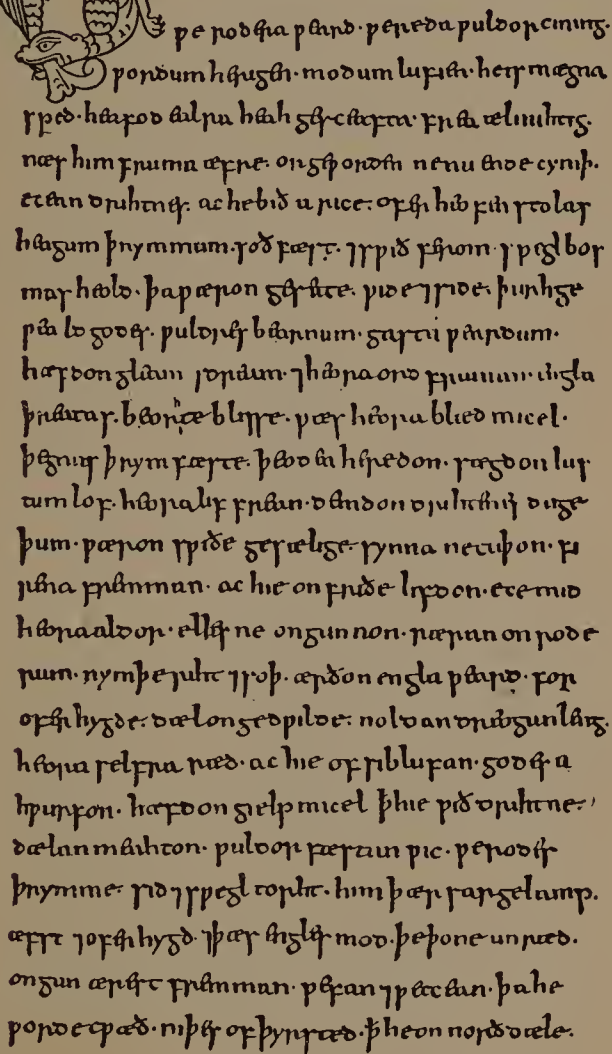 ƿe rodera ƿeard · ƿereda ƿuldorcining.
ƿordum herigen · modum lufien · he is mægna
sped · heafod ealra heah gesceafta · frea ælmihtig.
næs him fruma æfre · or geƿorden ne nu ende cymþ.
ecean drihtnes · ac he bið a rice · ofer heofen stolas
heagum þrymmum · soð fæst · ⁊ sƿið ferom · sƿegl bos
mas heold · þa ƿæron gesette · ƿide ⁊ side · þurh ge
ƿeald godes · ƿuldres bearnum · gasta ƿeardum ·
hæfdon gleam ⁊ dream · ⁊ heora ord fruman · engla
þreatas · beorhte blisse · ƿæs heora blæd micel ·
þegnas þrymfæste · þeoden heredon · sægdon lus
tum lof · heora lif frean · demdon drihtenes duge
þum · ƿæron sƿiðe gesælige · synna ne cuþon · fi
rena fremman · ac hie on friðe lifdon · ece mid
heora aldor · elles ne ongunnon · ræran on rode
rum · nymþe riht ⁊ soþ · ærðon engla ƿeard · for
oferhygde · dæl on gedƿilde · noldan dreogan leng.
heora selfra ræd · ac hie of siblufan · godes a
hƿurfon · hæfdon gielp micel ꝥ hie ƿið drihtne ·
dælan meahton · ƿuldorfæstan ƿic · ƿerodes
þrymme · sid ⁊ sƿegl torht · him þær sar gelamp.
æfst ⁊ oferhygd · ⁊ þæs engles mod · þe þone unræd.
ongan ærest fremman · ƿefan ⁊ ƿeccean · þa he
ƿorde cƿæð · niþes ofþyrsted · ꝥ he on norðdæle ·